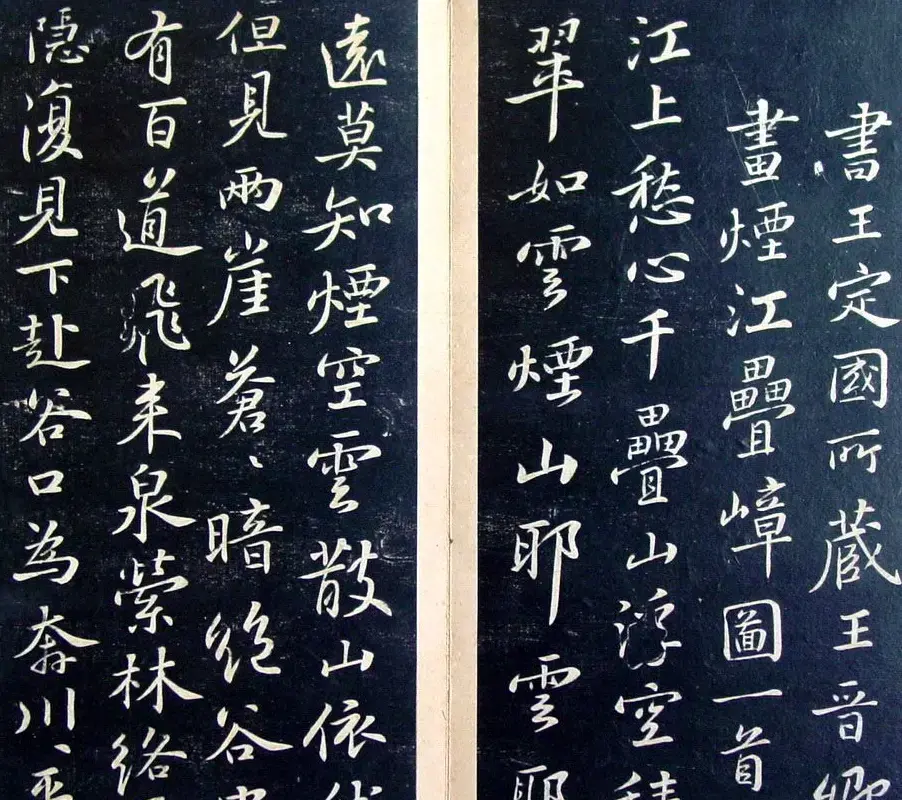 書王定國所藏王晉卿
畫煙江疊嶂圖一首
江上愁心千疊山浮空積
翠如雲煙山耶雲耶
遠莫知煙空雲散山依
但見兩崖蒼〻暗絕谷
有百道飛來泉縈林絡
隱復見下赴谷口為奔川〻平